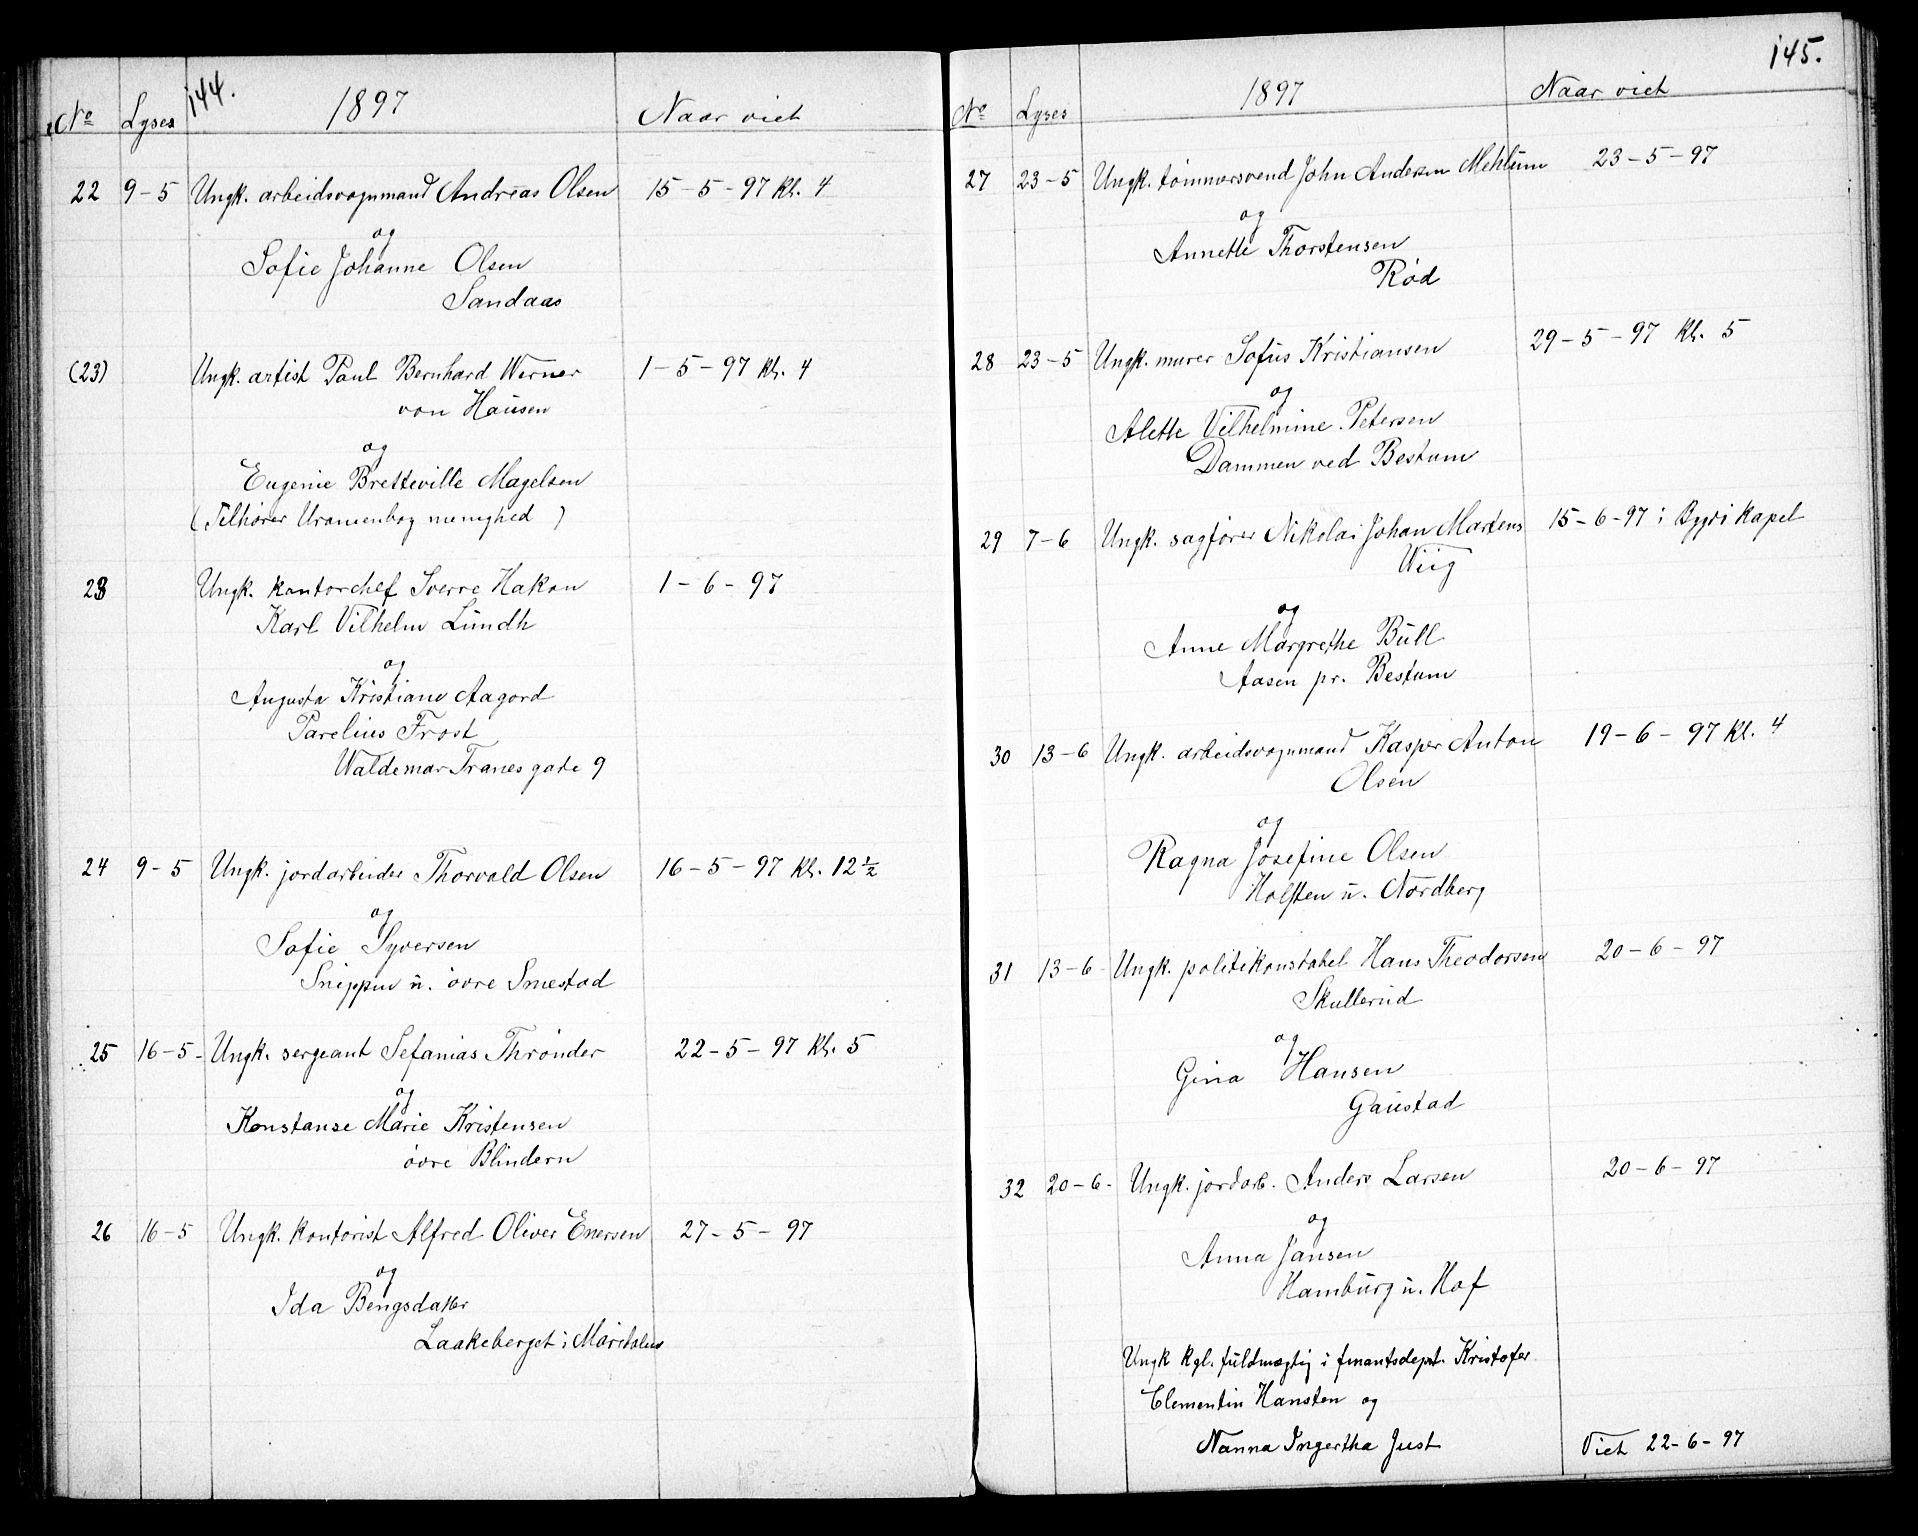 144.
No Lyses 1897 Naar viet
22 9-5 Ungk. arbeidsvognmand Andreas Olsen 15-5-97 Kl. 4
og
Sofie Johanne Olsen
Sandaas
(23) Ungk. artist Paul Bernhard Werner 1-5-97 Kl. 4
von Hausen
og
Eugenie Bretteville Magelsen
(Tilhører Uranienborg menighed)
23 Ungk. kontorchef Sverre Hakon 1-6-97
Karl Vilhelm Lundh
og
Augusta Kristiane Aagord
Parelius Frost
Waldemar Tranes gate 9
24 9-5 Ungk. jordarbeider Thorvald Olsen 16-5-97 Kl. 12 ½
og
Sofie Syversen
Snippen u. övre Smestad
25 16-5- Ungk. sergeant Sefanias Thrönder 22-5-97 Kl. 5
og
Konstanse Marie Kristensen
övre Blindern
26 16-5 Ungk. kontorist Alfred Oliver Enersen 27-5-97
og
Ida Bengsdatter
Laakeberget i Maridalen
145.
No Lyses 1897 Naar viet
27 23-5 Ungk. tömmersvend John Andersen Mehlum 23-5-97
og
Annette Thorstensen
Röd
28 23-5 Ungk. murer Sofus Kristiansen 29-5-97 Kl. 5
og
Alette Vilhelmine Petersen
Dammen ved Bestum
29 7-6 Ungk. sagförer Nikolai Johan Martens 15-6-97 i Bygdö Kapel
Wiig
og
Anne Margrethe Bull
Aasen pr. Bestum
30 13-6 Ungk. arbeidsvognmand Kasper Anton 19-6-97 Kl. 4
Olsen
og
Ragna Josefine Olsen
Holsten u. Nordberg
31 13-6- Ungk. politikonstabel Hans Theodorsen 20-6-97
Skullerud
og
Gina Hansen
Gaustad
32 20-6- Ungk. jordarb. Anders Larsen 20-6-97
og
Anna Jansen
Hamburg u. Hof
Ungk kgl. fuldmægtig i finantsdept. Kristofer
Clementin Hansten og
Nanna Ingertha Just Viet 22-6-97